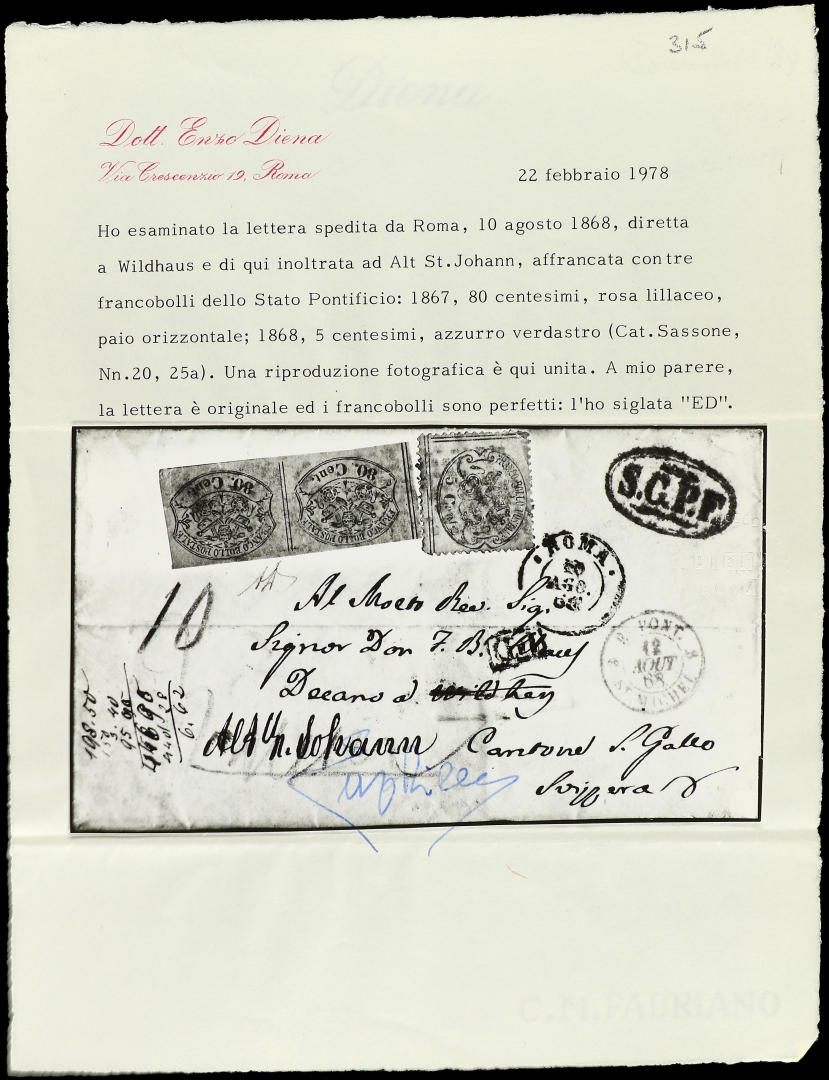 315
Diena
Dott. Enzo Diena
Via Crescenzio 19, Roma
22 febbraio 1978
Ho esaminato la lettera spedita da Roma, 10 agosto 1868, diretta
a Wildhaus e di qui inoltrata ad Alt St.Johann, affrancata con tre
francobolli dello Stato Pontificio: 1867, 80 centesimi, rosa lillaceo,
paio orizzontale; 1868, 5 centesimi, azzurro verdastro (Cat.Sassone,
Nn.20, 25a). Una riproduzione fotografica è qui unita. A mio parere,
la lettera è originale ed i francobolli sono perfetti: l'ho siglata "ED".
80. Cent. 80. Cent.
FRANCO BOLLO POSTALE FRANCO BOLLO POSTALE
S.C.P.F.
ROMA
AGO.
68
10
Al Molto Rev. Sig.
Signor Don F. B.
Decano a
Alt St. Johann Cantone S. Gallo
Svizzera
E. PONT. 8
12
AOUT
68
ST MICHEL
6.62
C.M.FABRIANO